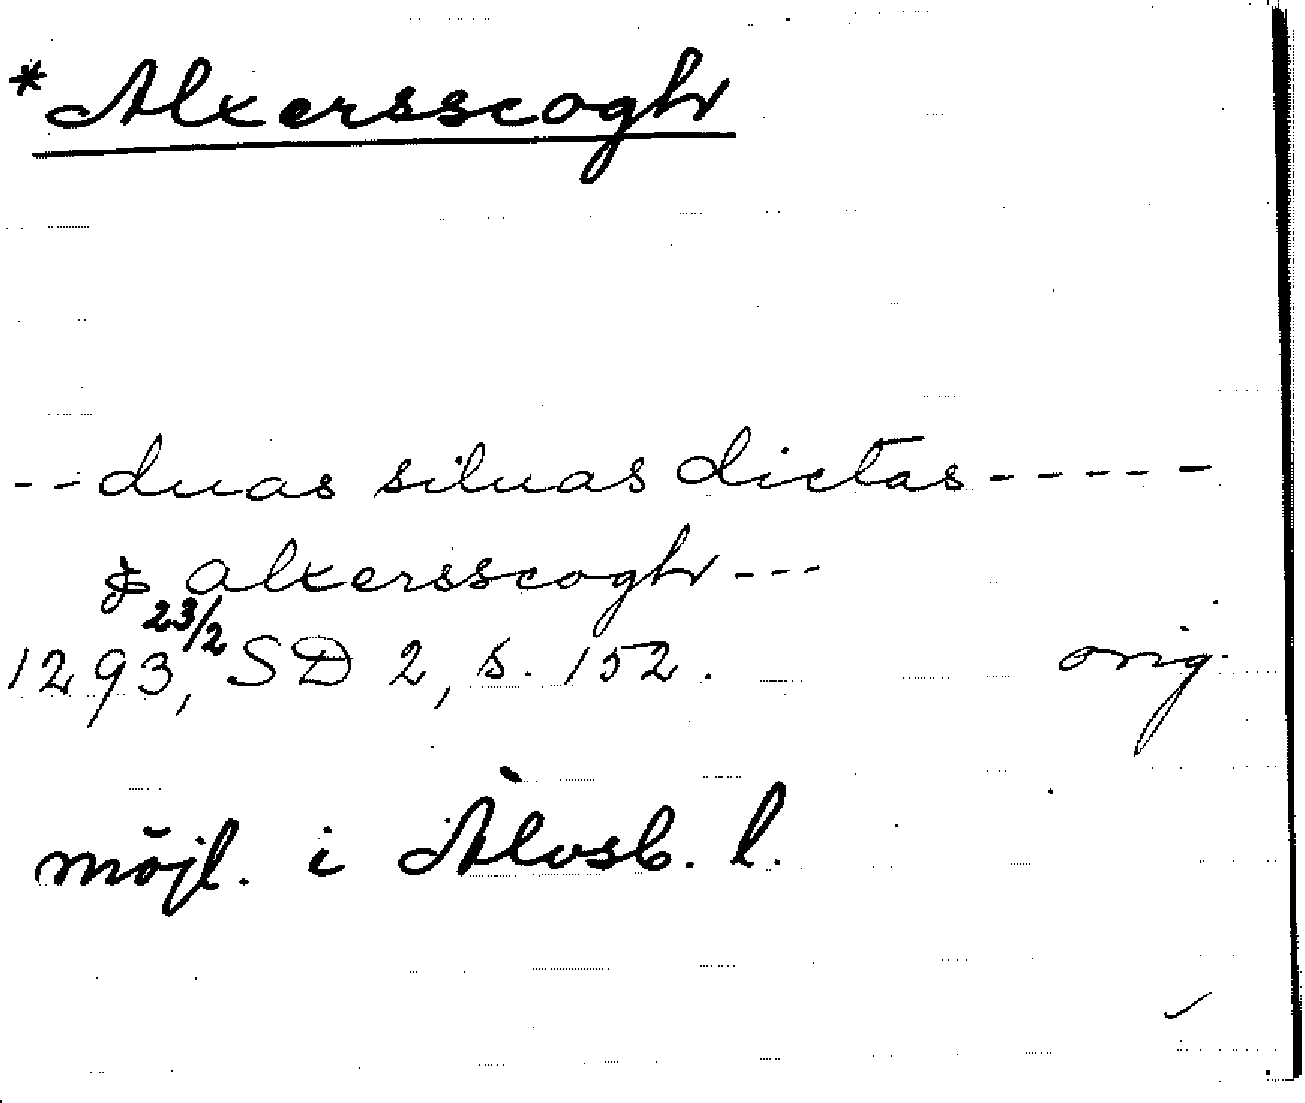 *Alxersscogh
--duas siluas dictas-----
& alxersscogh---
1293 23/2, SD 2, s. 152. orig.
möjl. i Älvsb. l.